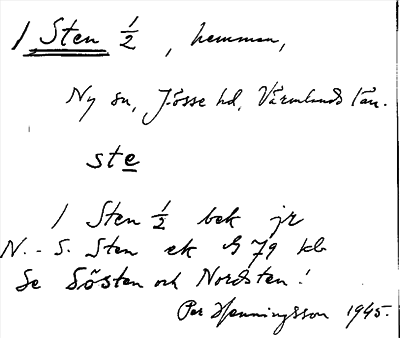 1 Sten 1/2, hemman,
Ny sn, Jösse hd, Värmlands län.
ste
1 Sten 1/2 bek jr
N. - S. Sten ek G 79 kb
Se Sösten och Nordsten!
Per Henningsson 1945.